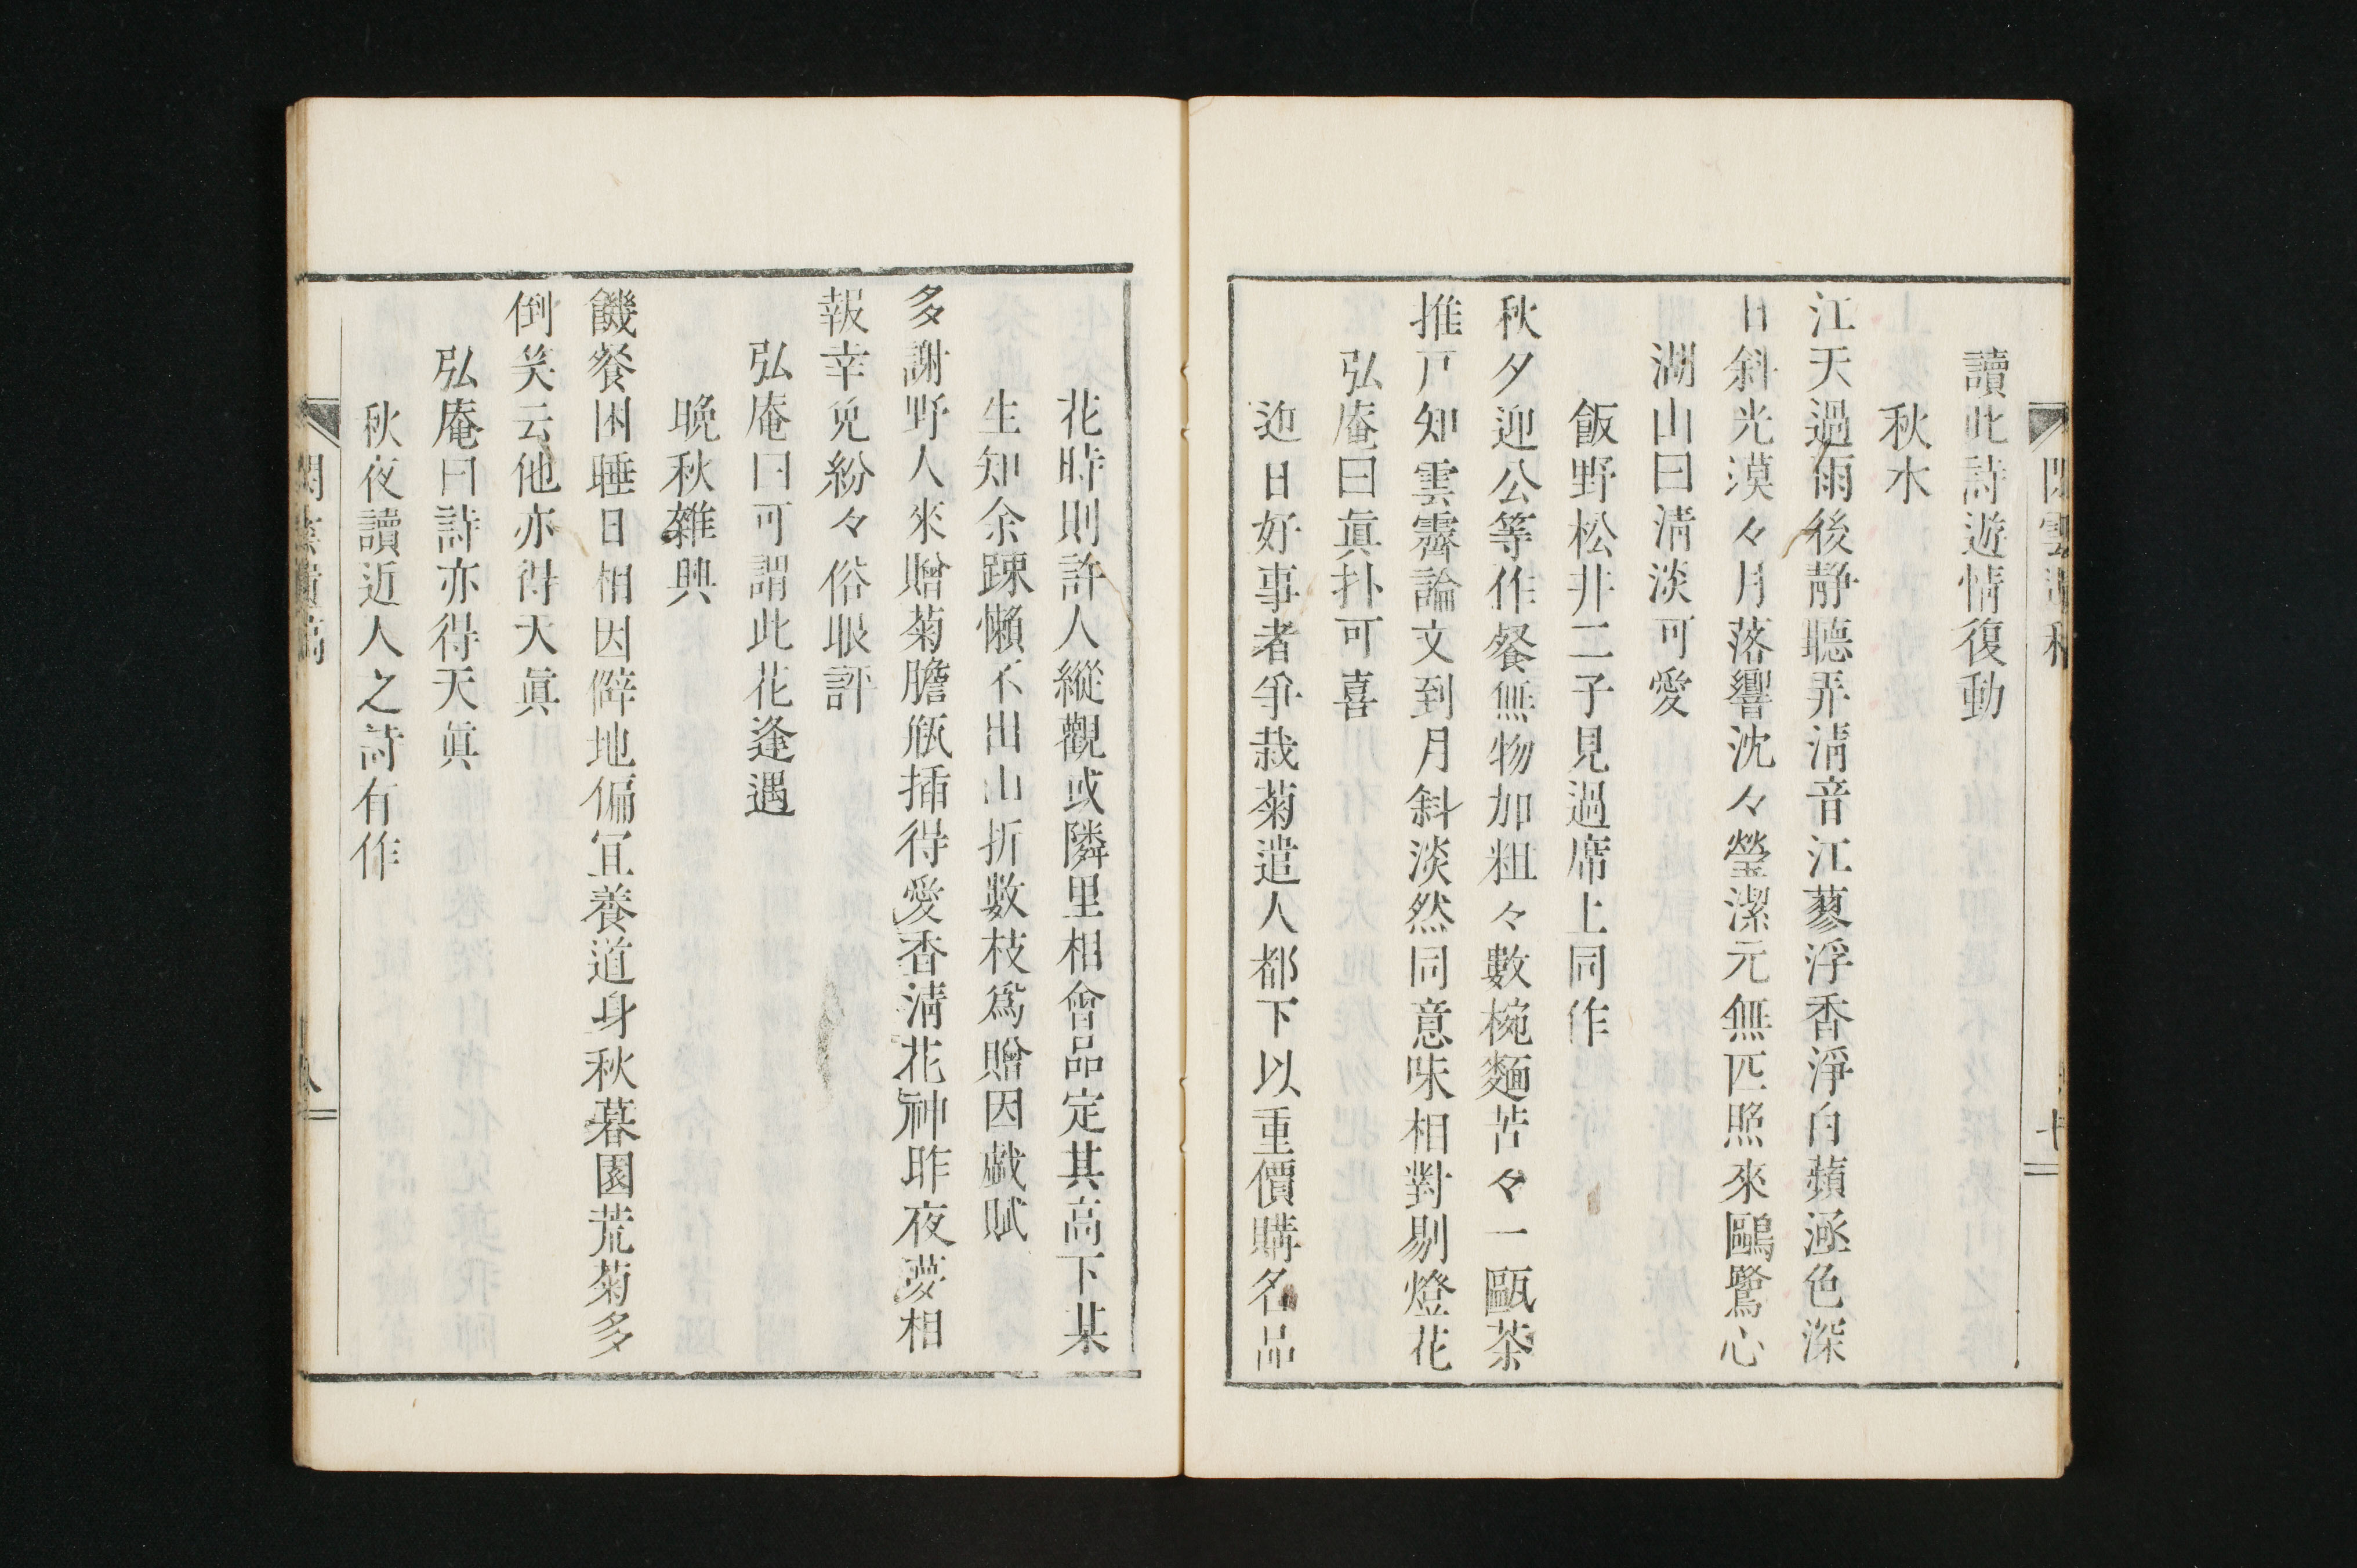 讀此詩遊情復動
秋水
江天過雨後靜聽弄淸音江蓼浮香淨白蘋涵色深
日斜光漠々月落響沈々瑩潔元無匹照來鷗鷺心
湖山曰淸淡可愛
飯野松井二子見過席上同作
秋夕迎公等作餐無物加粗々數椀麵苦々一甌茶
推戸知雲霽論文到月斜淡然同意味相對剔燈花
弘庵曰眞朴可喜
近日好事者爭栽菊遣人都下以重價購名品
花時則許人縱觀或隣里相會品定其高下某
生知余踈懶不出山折數枝爲贈因戯賦
多謝野人來贈菊膽甁揷得愛香淸花神昨夜夢相
報幸免紛々俗眼評
弘庵曰可謂此花逢遇
晩秋雜興
饑餐困睡日相因僻地偏冝養道身秋暮園荒菊多
倒笑云他亦得天眞
弘庵曰詩亦得天眞
秋夜讀近人之詩有作
八